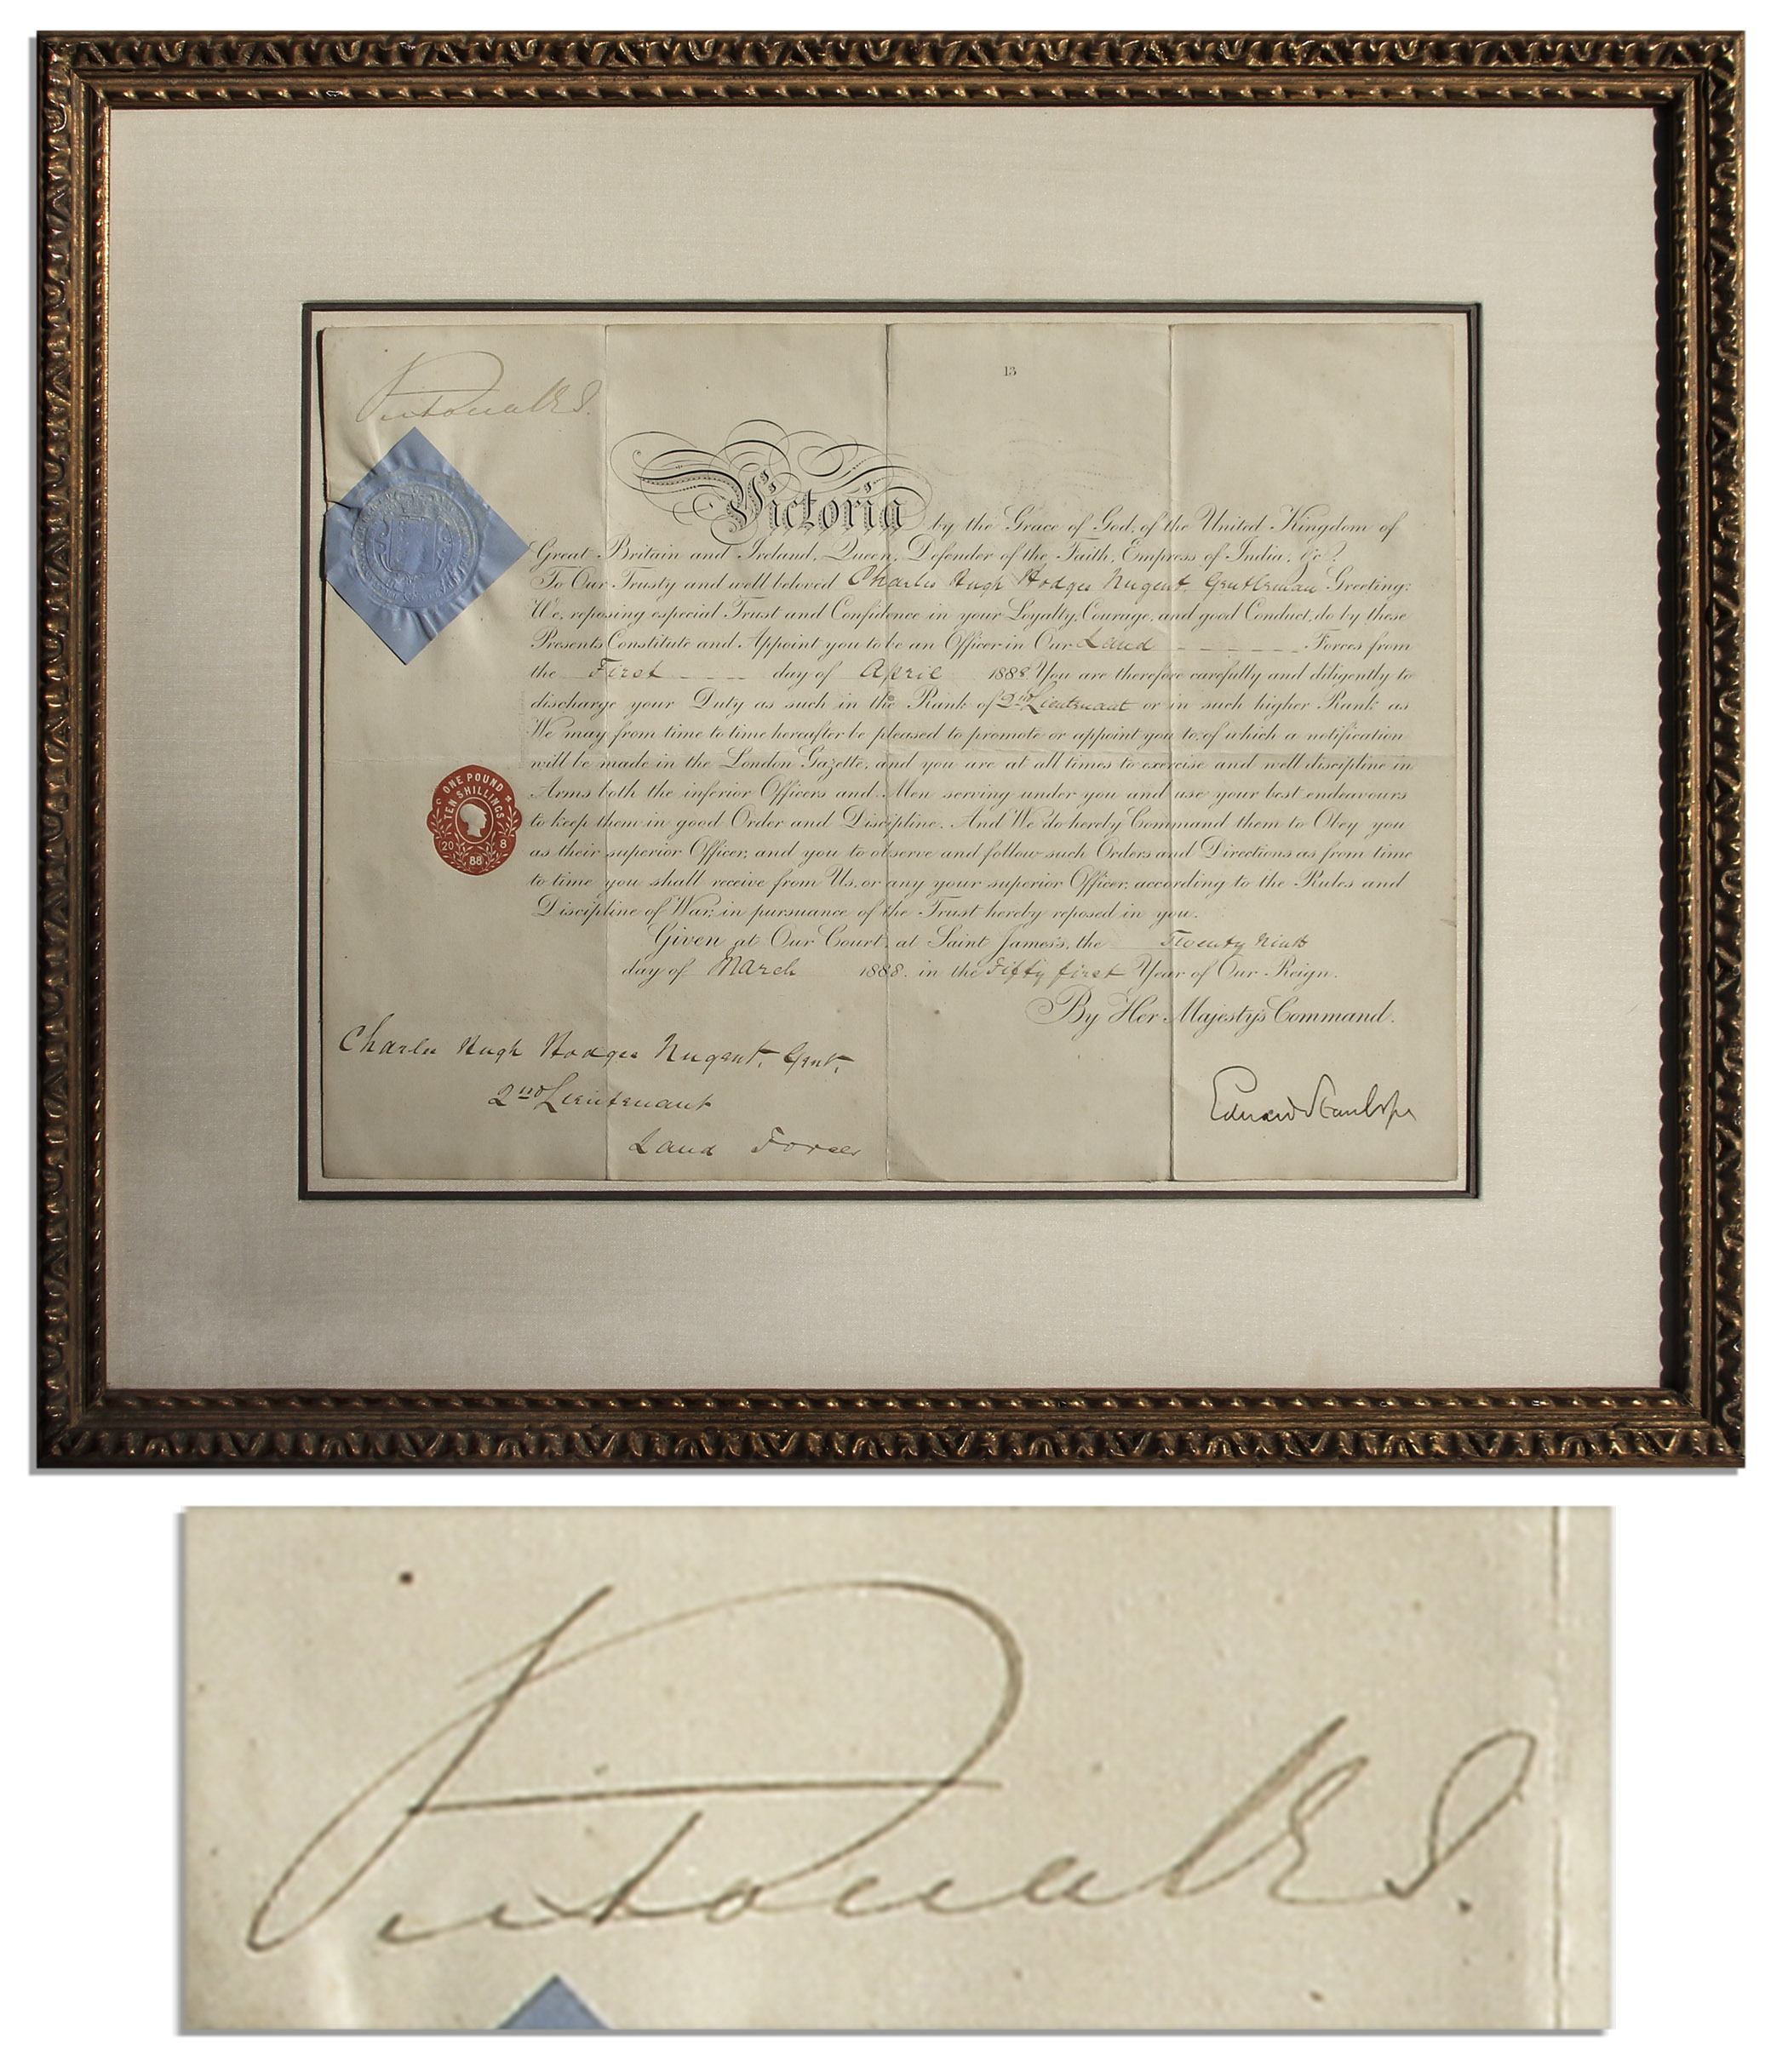 Victoria R I.
13
Victoria by the Grace of God, of the United Kingdom of
Great Britain and Ireland, Queen, Defender of the Faith, Empress of India, &c.
To Our Trusty and well beloved Charles Hugh Hodges Nugent, Gentleman Greeting:
We, reposing especial Trust and Confidence in your Loyalty, Courage, and good Conduct, do by these
Presents Constitute and Appoint you to be an Officer in Our Land Forces from
the First day of April 1888 You are therefore carefully and diligently to
discharge your Duty as such in the Rank of 2nd Lieutenant or in such higher Rank as
We may from time to time hereafter be pleased to promote or appoint you to, of which a notification
will be made in the London Gazette, and you are at all times to exercise and well discipline in
Arms both the inferior Officers and Men serving under you and use your best endeavours
to keep them in good Order and Discipline. And We do hereby Command them to Obey you
as their superior Officer, and you to observe and follow such Orders and Directions as from time
to time you shall receive from Us, or any your superior Officer, according to the Rules and
Discipline of War, in pursuance of the Trust hereby reposed in you.
Given at Our Court, at Saint James's, the Twenty Ninth
day of March 1888. in the Fifty first Year of Our Reign.
By Her Majesty's Command.
ONE POUND
TEN SHILLINGS
20 8
88
Charles Hugh Hodges Nugent, Gent,
2nd Lieutenant
Land Forces
Edward Stanhope
Victoria R I.